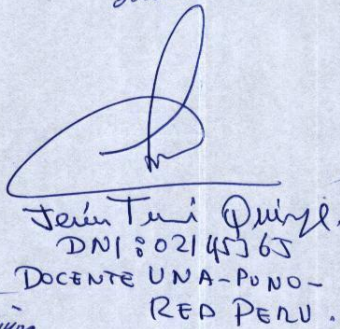 Jesús Tumi Quispe.
DNI: 02145365
DOCENTE UNA-PUNO-
RED PERU.